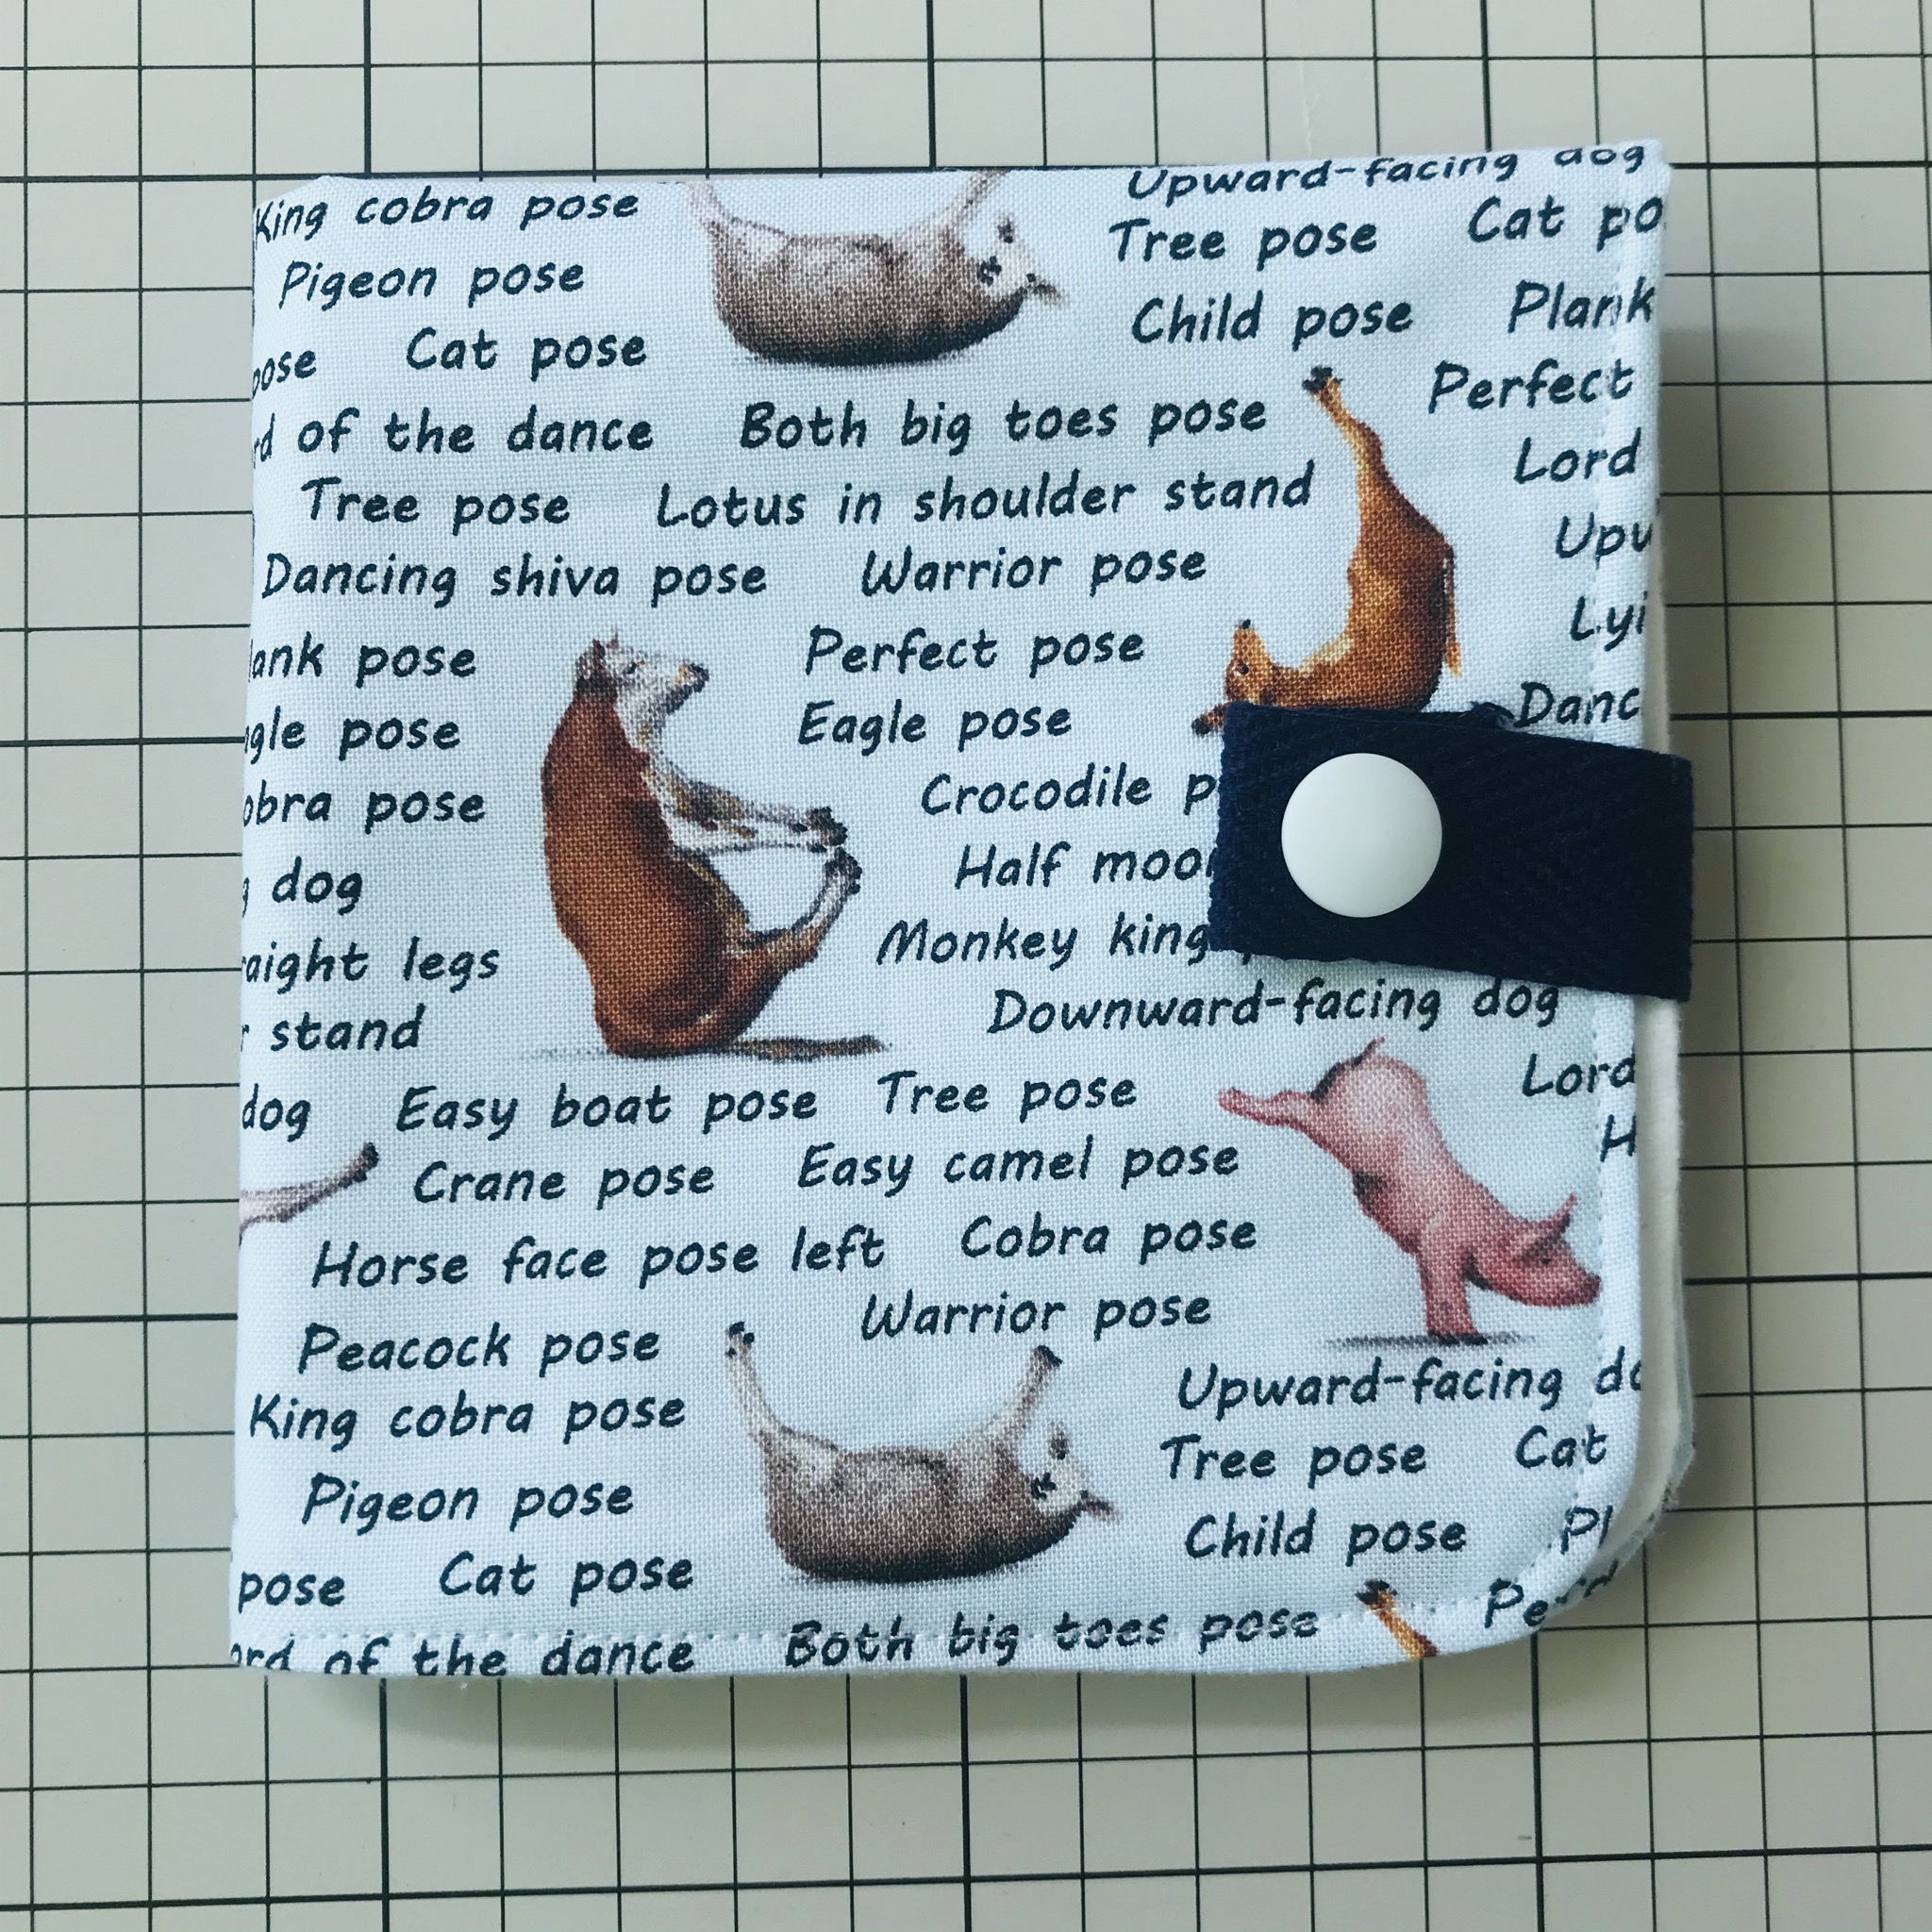 King cobra pose
Upward-facing dog
Pigeon pose
Tree pose Cat po
pose Cat pose
Child pose Plank
rd of the dance Both big toes pose
Perfect
Tree pose Lotus in shoulder stand
Lord
Dancing shiva pose Warrior pose
Upw
lank pose Perfect pose
Lyi
agle pose Eagle pose
Danc
obra pose Crocodile p
g dog Half moo
raight legs Monkey king
r stand Downward-facing dog
dog Easy boat pose Tree pose
Lord
Crane pose Easy camel pose
H
Horse face pose left Cobra pose
Peacock pose Warrior pose
King cobra pose
Upward-facing do
Pigeon pose
Tree pose Cat
pose Cat pose
Child pose Pl
ord of the dance Both big toes pose
Pe